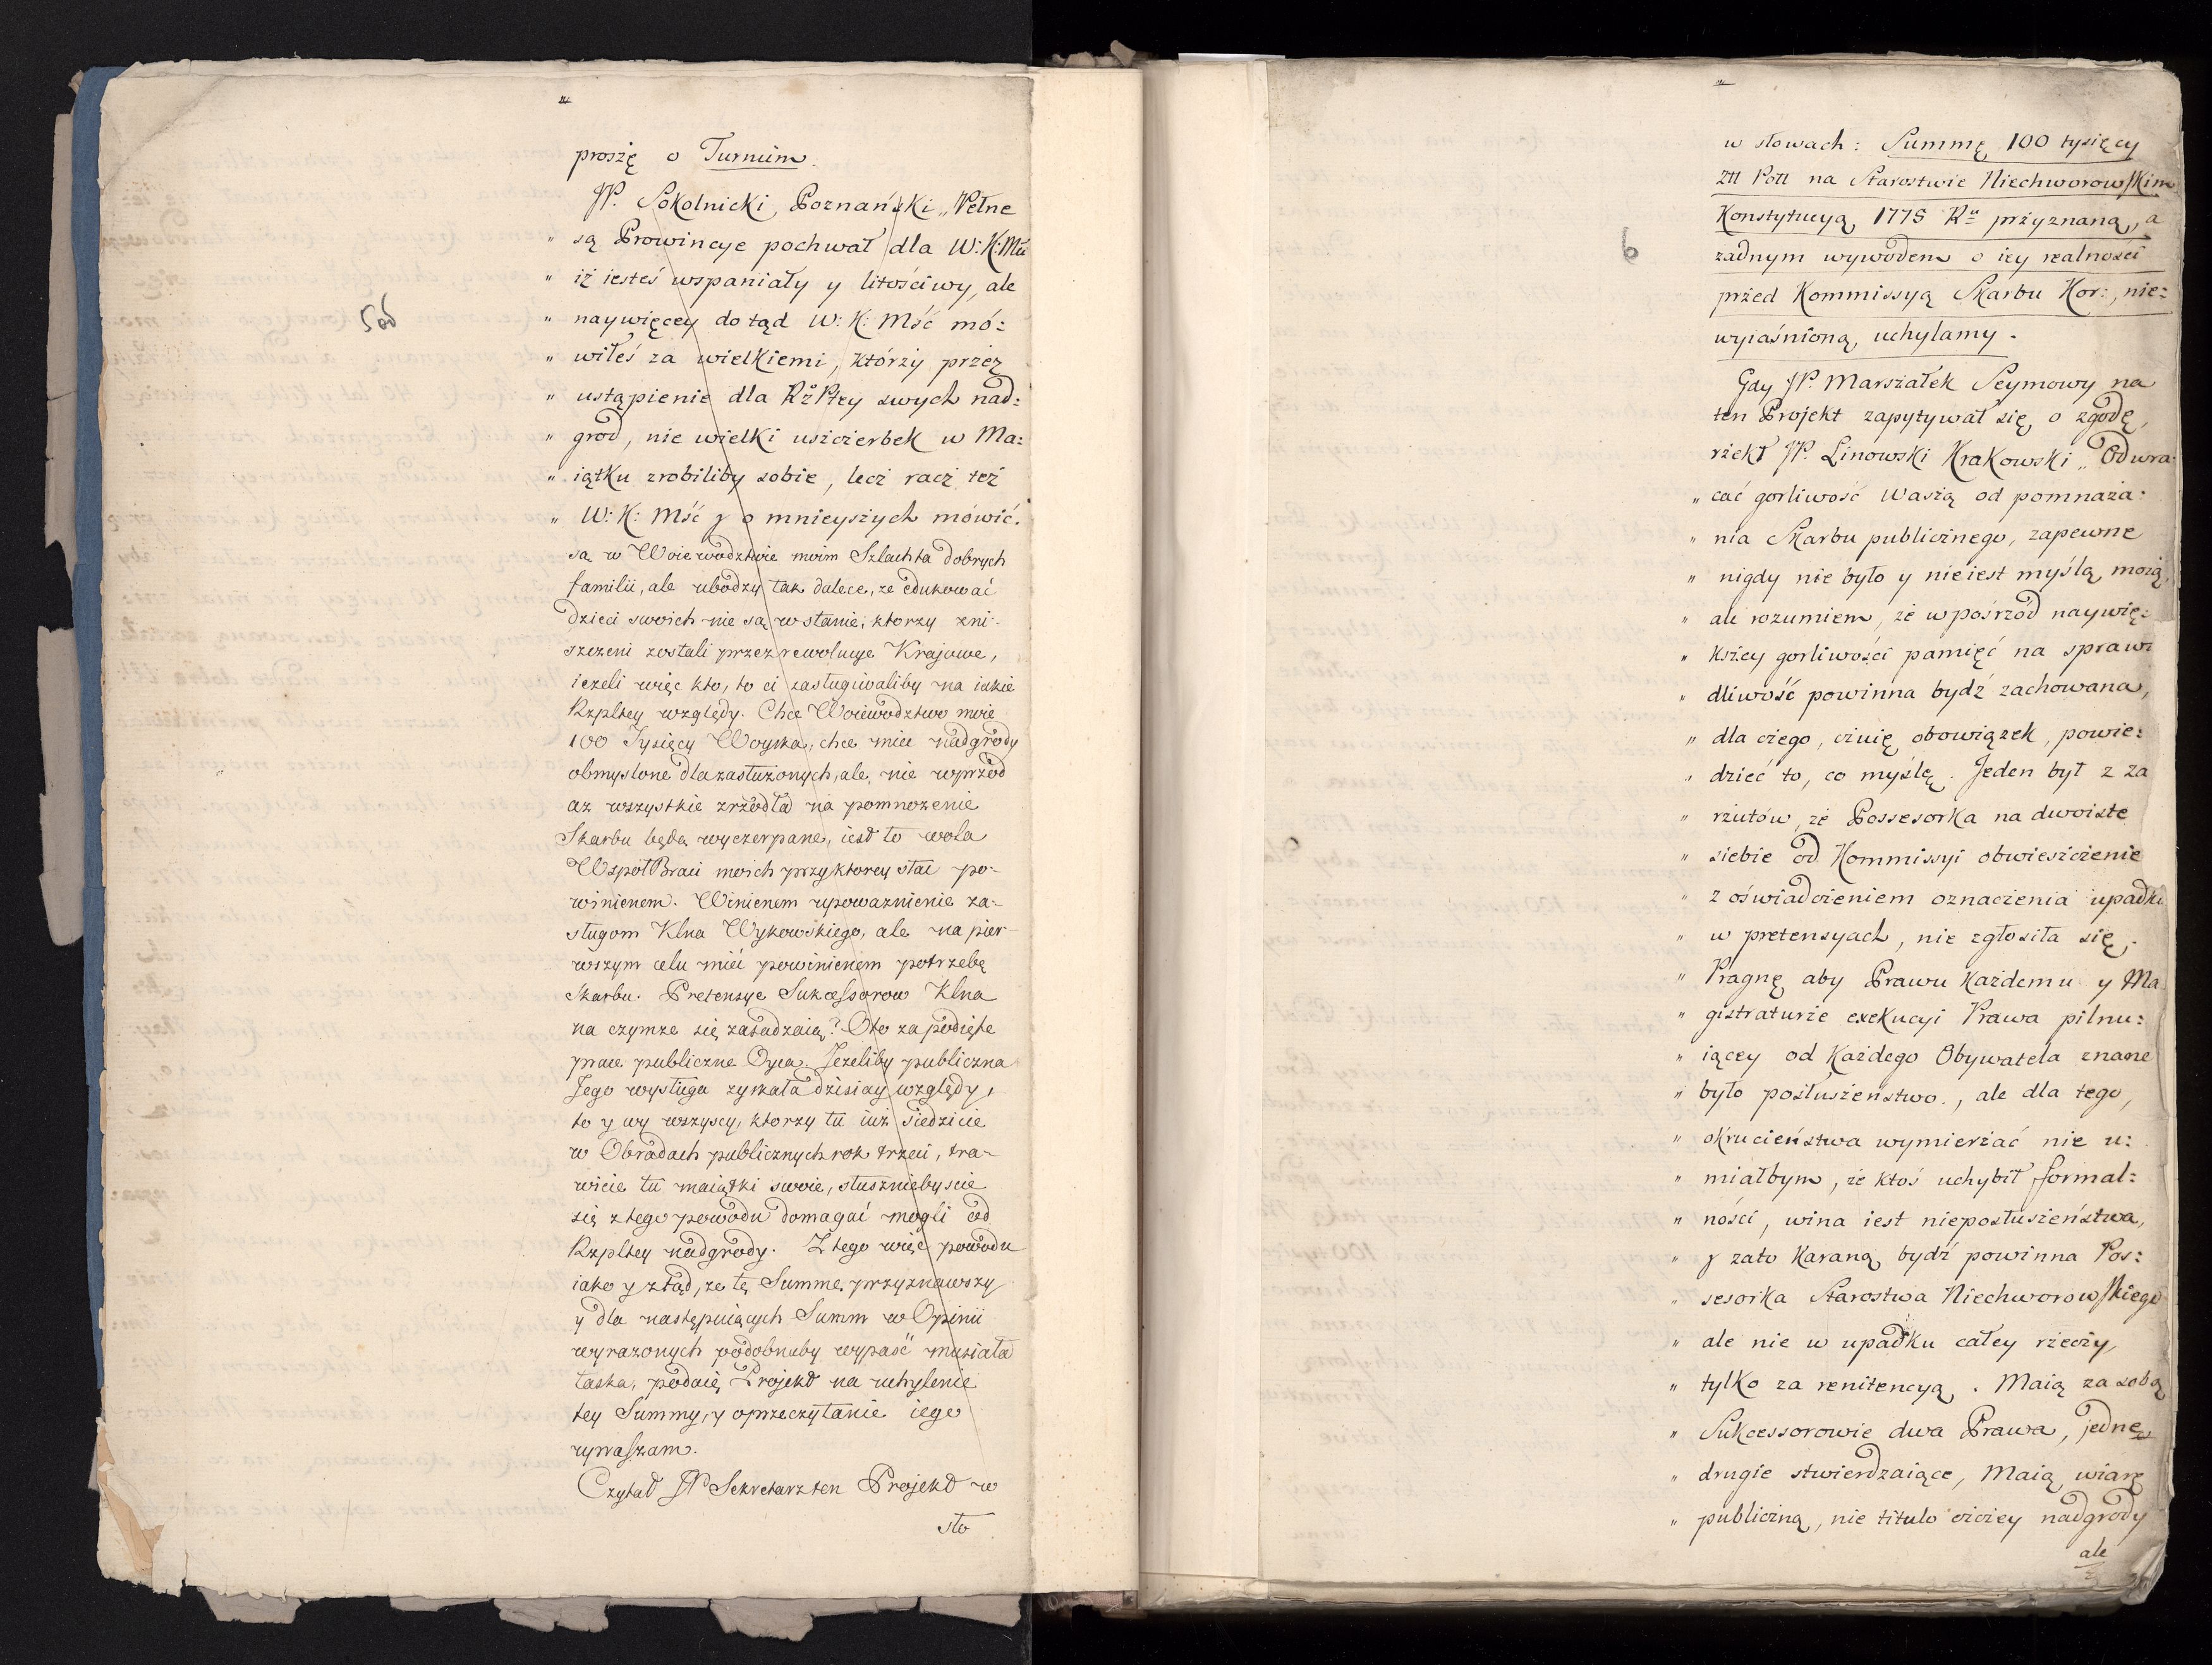 proszę o Turnum.
JP. Sokolnicki Poznański „Pełne
„ są Prowincye pochwał dla W: K: Mci
„ iż iesteś wspaniały y litościwy, ale
„ naywięcey do tąd W: K: Mść mó:
„ wiłeś za wielkiemi, którzy przez
„ ustąpienie dla RzPtey swych nad:
„ gród, nie wielki uszczerbek w Ma:
„ iątku zrobiliby sobie, lecz racz też
„ W: K: Mść y o mnieyszych mówić.
są w Woiewodztwie moim Szlachta dobrych
familii, ale ubodzy tak dalece, ze edukować
dzieci swoich nie są w stanie, ktorzy zni-
szczeni zostali przez rewolucye Krajowe,
iezeli więc kto, to ci zasługiwaliby na iakie
Rzpltey względy. Chce Woiewodztwo moie
100 Tysięcy Woyska, chce mieć nadgrody
obmyslone dla zasłużonych, ale nie wprzod
az wszystkie zrzodła na pomnozenie
Skarbu będą wyczerpane, iest to wola
WspołBraci moich przy ktorey stać po-
winienem. Winienem upowaznienie za-
sługom Klna Wykowskiego, ale na pier-
wszym celu mieć powinienem potrzebę
Skarbu. Pretensye Sukcessorow Klna
na czymze się zasadzaią? Oto za podięte
prace publiczne Oyca. Jezeliby publiczna
Jego wysługa zyskała dzisiay względy,
to y wy wszyscy, ktorzy tu iuz siedzicie
w Obradach publicznych rok trzeci, tra-
wicie tu maiątki swoie, słuszniebyscie
się z tego powodu domagać mogli od
Rzpltey nadgrody. Z tego więc powodu
iako y z tąd, ze tę Summę przyznawszy
y dla następuiących Summ w Opinii
wyrazonych podobnaby wypaść musiała
łaska, podaię Projekt na uchylenie
tey Summy, y o przeczytanie iego
upraszam.
Czytał JP Sekretarz ten Projekt w
sło
w słowach: Summę 100 tysięcy
Złł Poll na Starostwie Niechworowskim
Konstytucyą 1775 Ru przyznaną, a
żadnym wywodem o iey realności
przed Kommissyą Skarbu Kor:, nie:
wyiaśnioną, uchylamy.
6
Gdy JP. Marszałek Seymowy na
ten Projekt zapytywał się o zgodę,
rzekł JP. Linowski Krakowski „Odwra:
„ cać gorliwość Waszą od pomnaża:
„ nia Skarbu publicznego, zapewne
„ nigdy nie było y nieiest myślą moią,
„ ale rozumiem, że wpośrzód naywię:
„ kszey gorliwości pamięć na sprawie
„ dliwość powinna bydź zachowana,
„ dla czego, czuię obowiązek, powie:
„ dzieć to, co myślę. Jeden był z za
„ rzutów, że Possesorka na dwoiste
„ siebie od Kommissyi obwieszczenie
„ z oświadczeniem oznaczenia upadku
„ w pretensyach, nie zgłosiła się.
„ Pragnę aby Prawu każdemu y Ma
„ gistraturze exekucyi Prawa pilnu:
„ iącey od każdego Obywatela znane
„ było posłuszeństwo, ale dla tego,
„ okrucieństwa wymierzać nie u:
„ miałbym, że ktoś uchybił formal:
„ ności, wina iest nieposłuszeństwa,
„ y zato karaną bydź powinna Pos:
„ sesorka Starostwa Niechworowskiego
„ ale nie w upadku całey rzeczy,
„ tylko za renitencyą. Maią za sobą
„ Sukcessorowie dwa Prawa, jedne
„ drugie stwierdzaiące, Maią wiarę
„ publiczną, nie titulo czczey nadgrody
ale